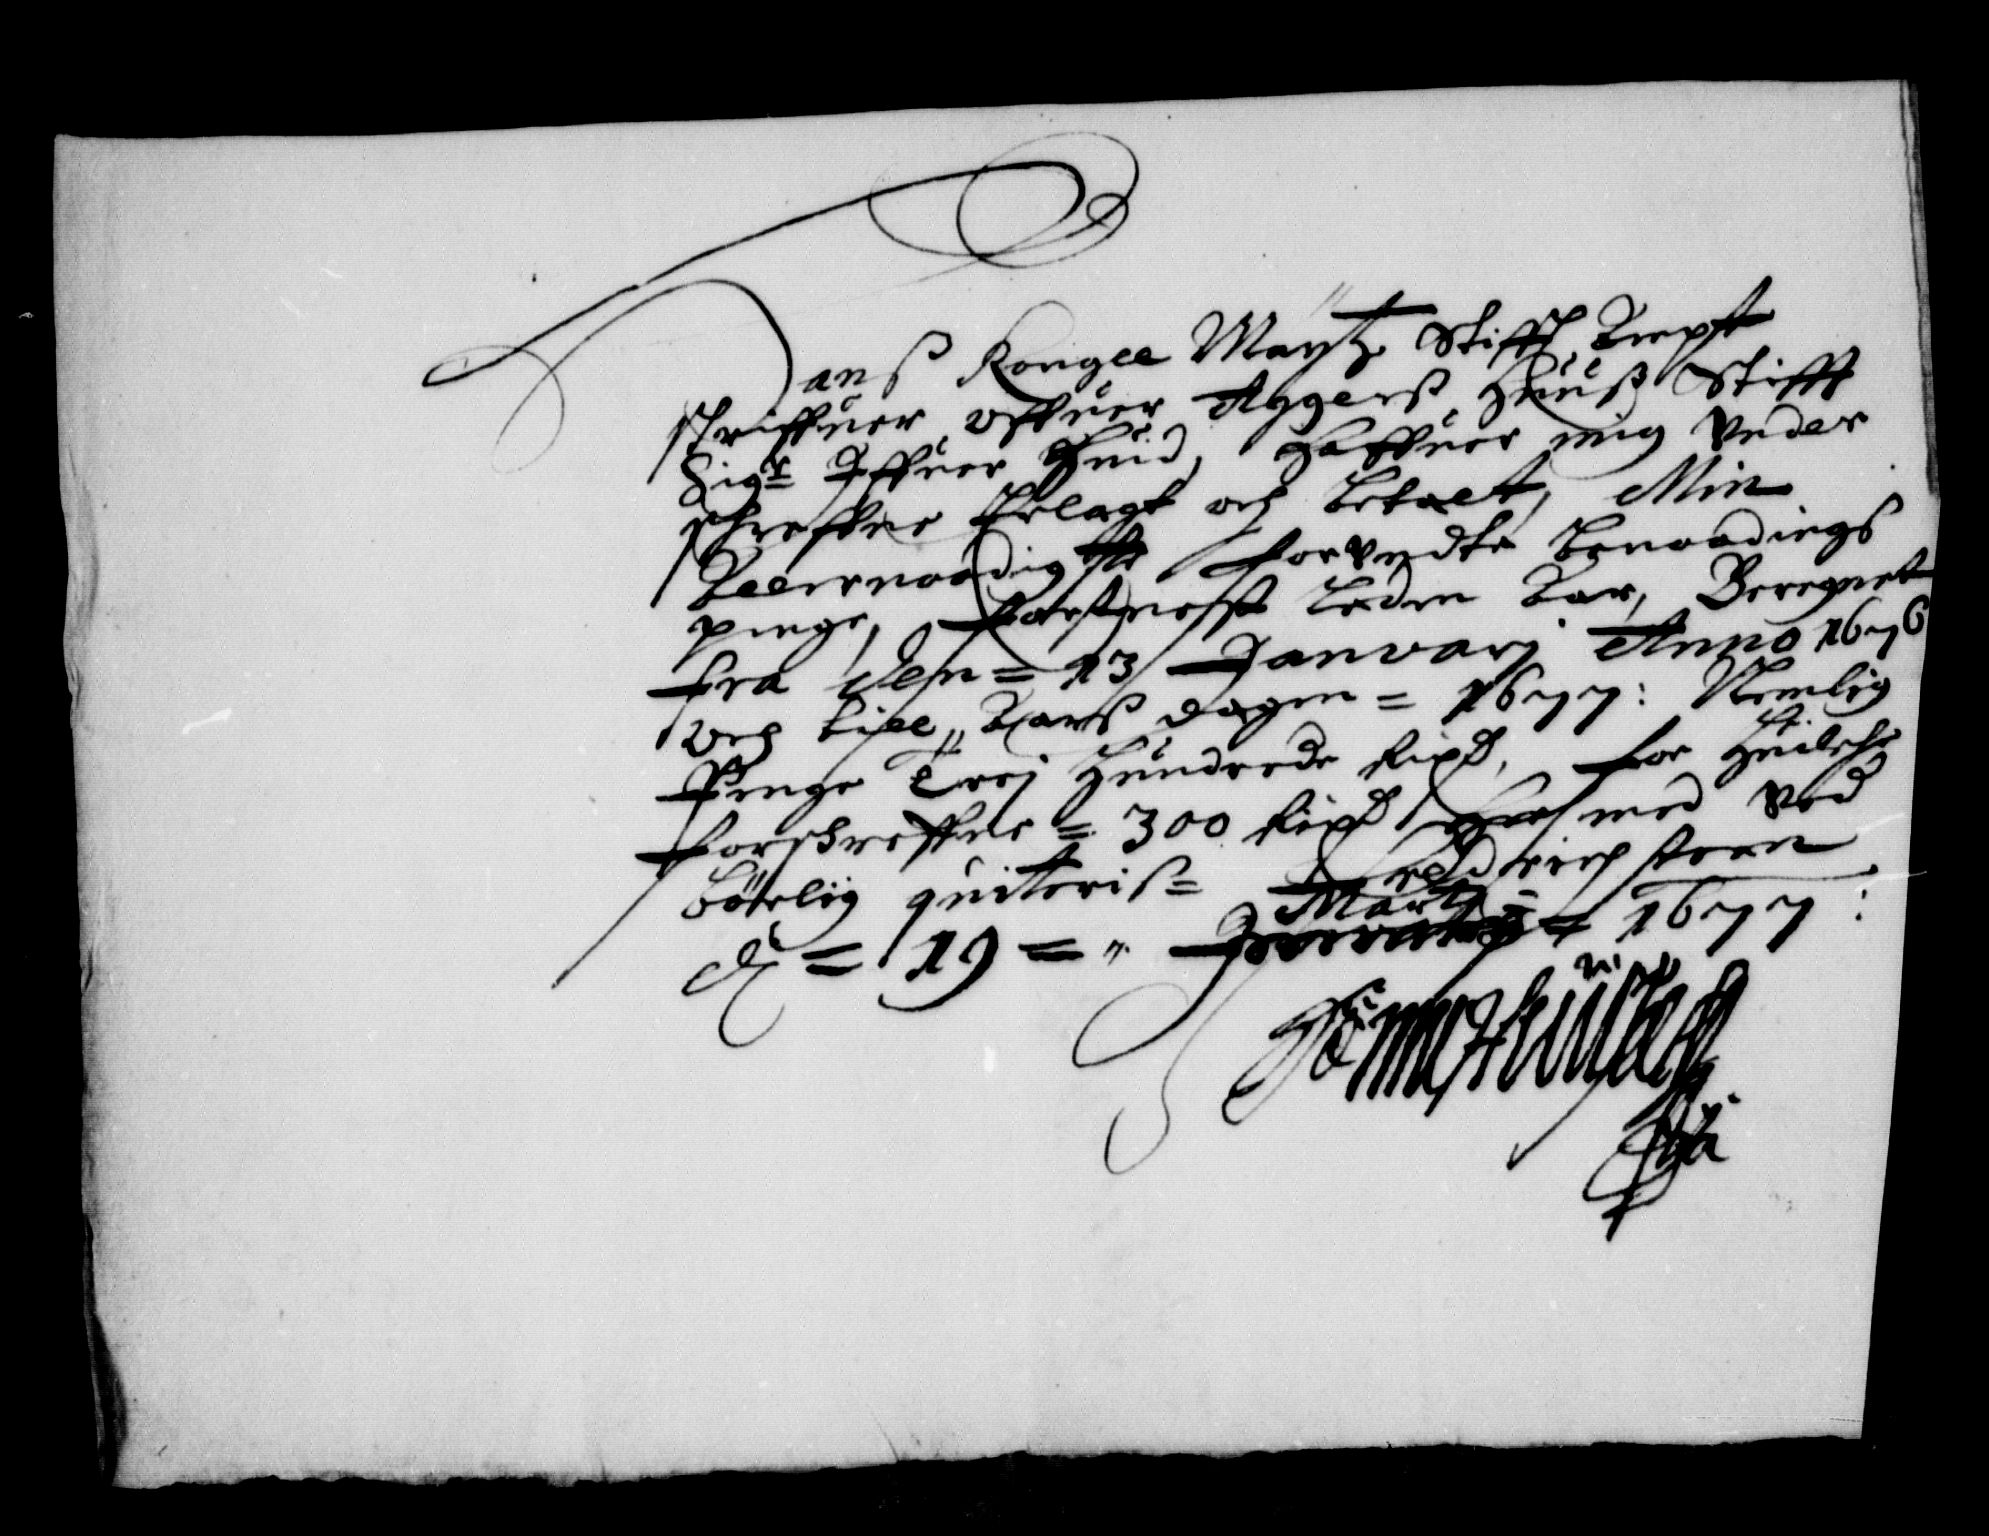 Hans Kongel Maytz Stiffts Ambt
schriffuer offuer Aggers Huuss Stifft
Sigr Iffuer Huid, Haffuer mig Under
schreffne Erlagt och betalt, Min
Allernaadigste forundte benaadings
penge, forst nest leden Aar, Beregnet
fra den = 13 Januarj Anno 1676
och till Aarss dagen = 1677: Nemlig
Penge Trej Hundrede Rixd, for Huilche
forschreffne = 300 Rixd Hermed ved
børlig quiteris = Fredrichsteen
d = 19 = Marty = 1677: